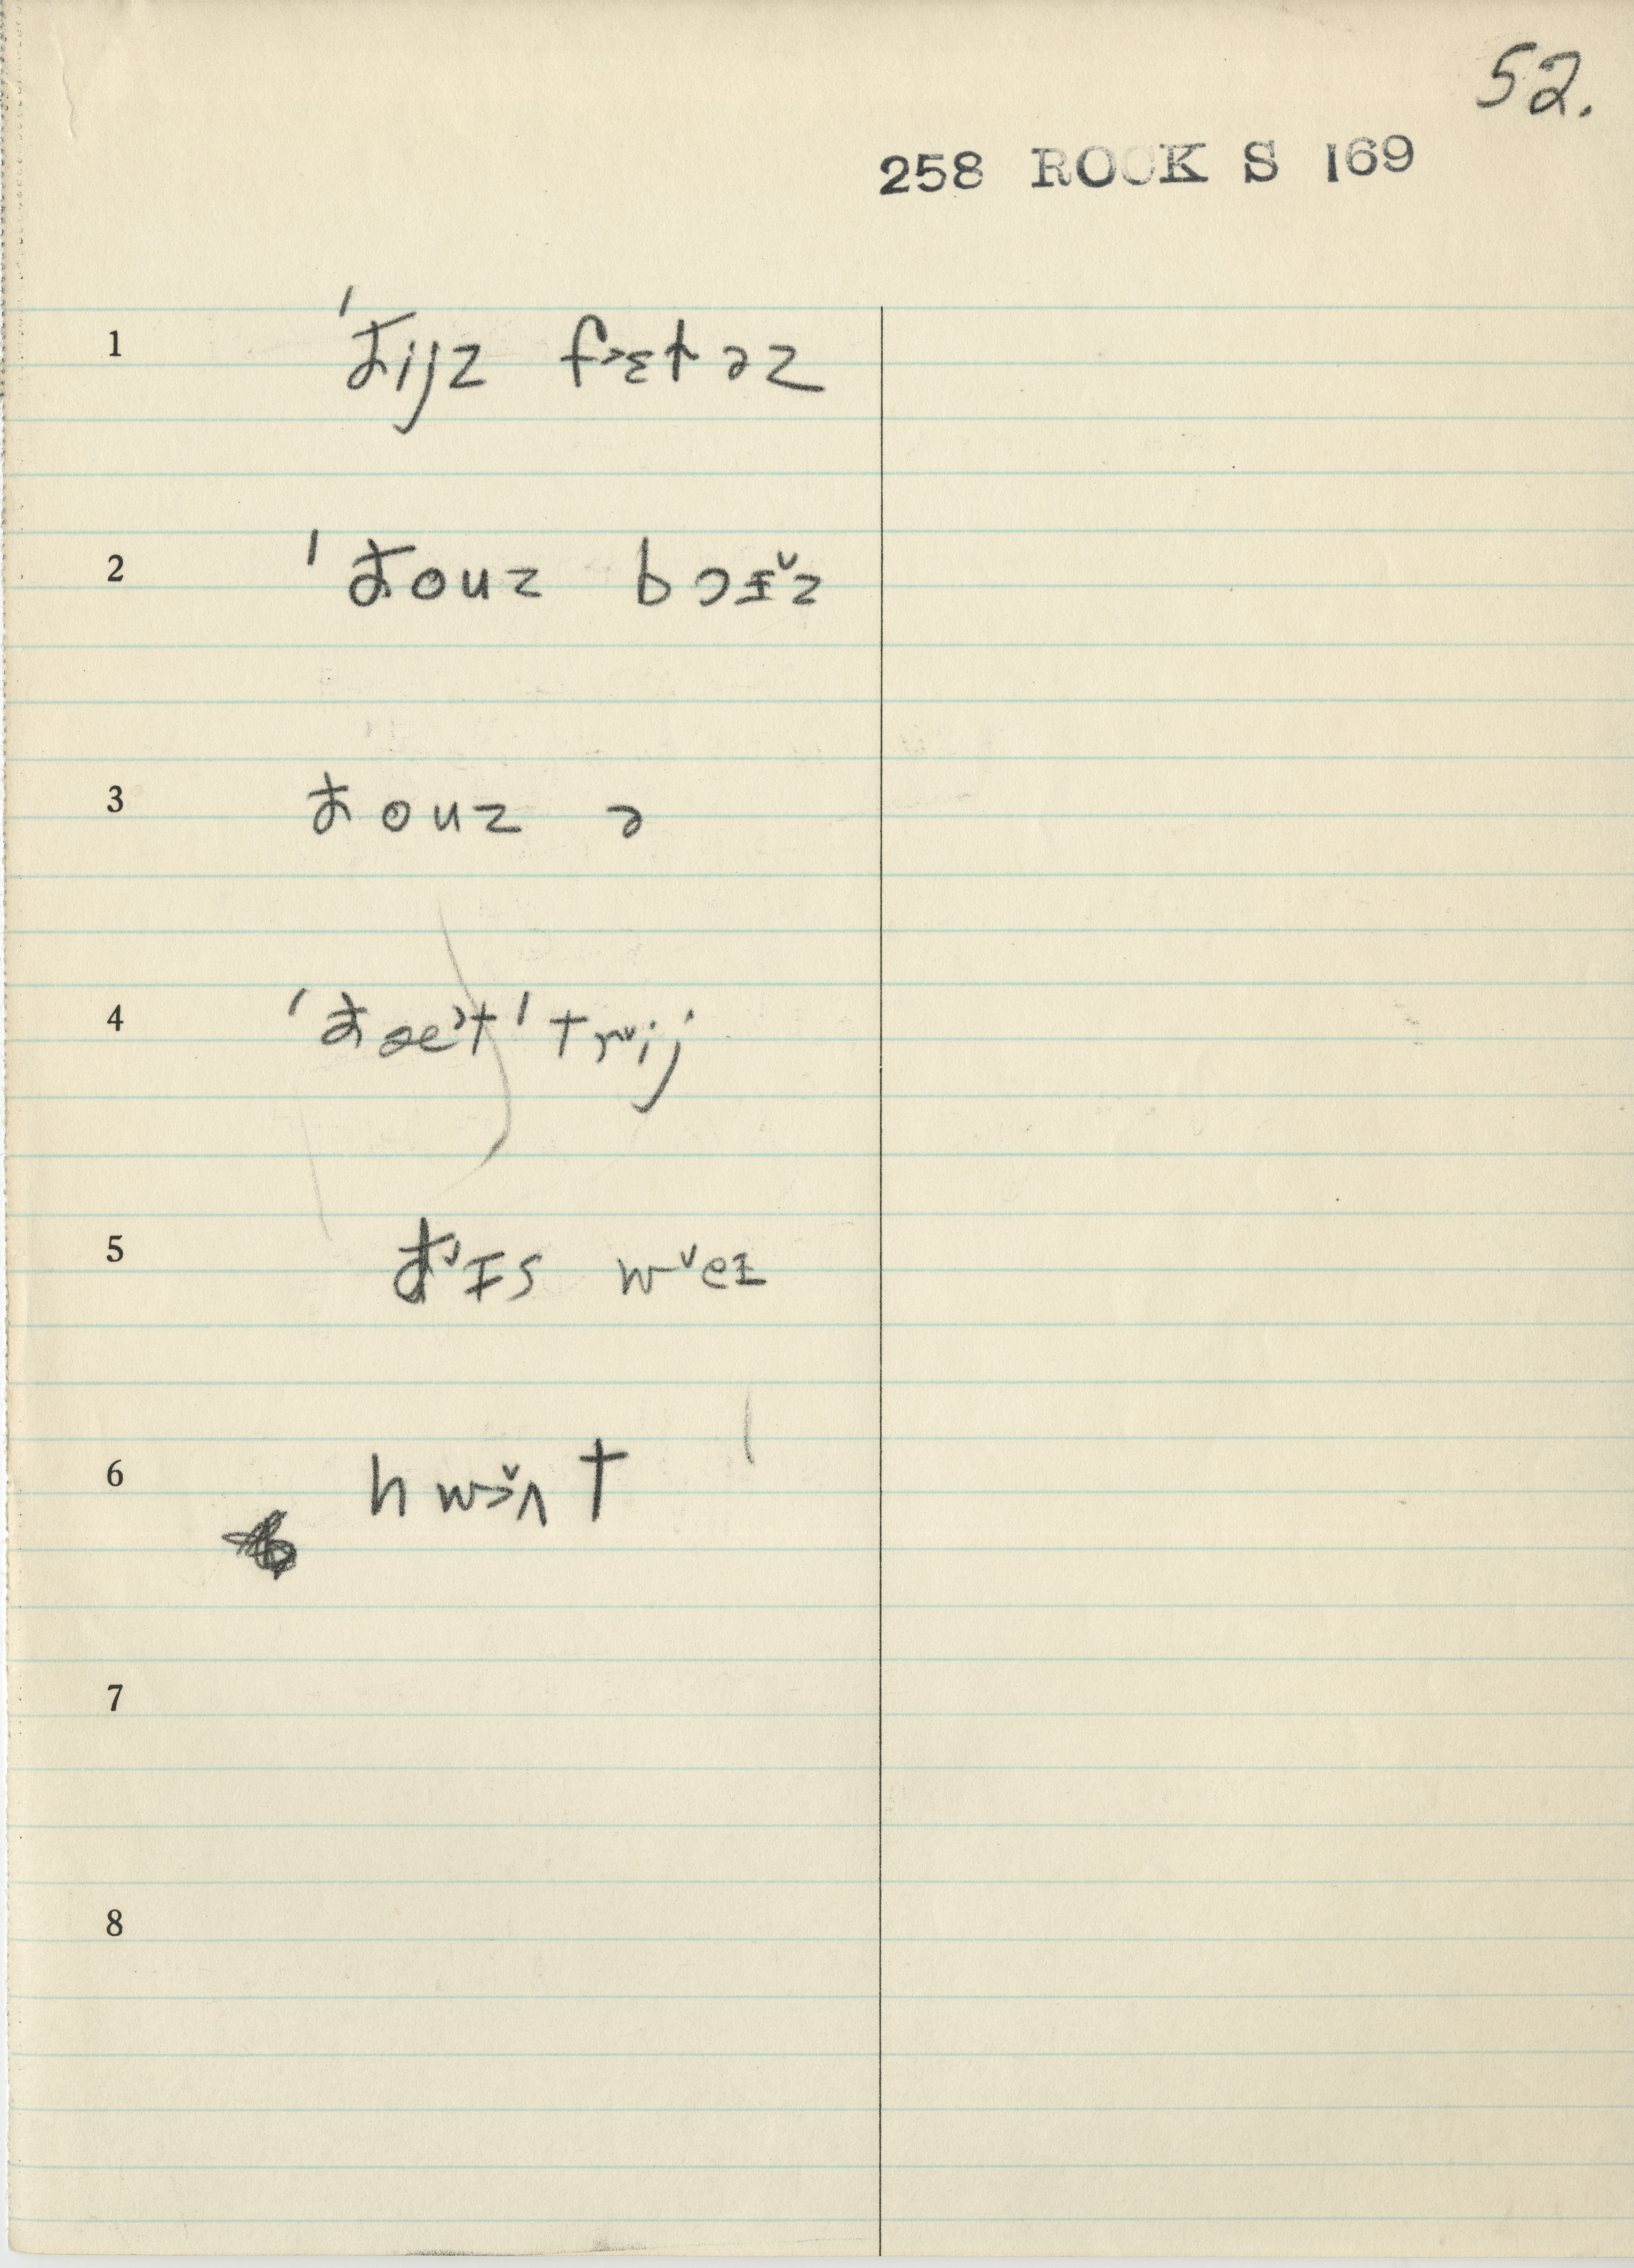 52.
258 ROCK S 169
1 'đijz f˃ɛt əz
2 'đouz bɔɪ̌z
3 đouz ə
4 'đæ˃t 'tr˅ij
5 đ˅ɪs w˅eɪ
6 hwɔ̌ʌt
7
8